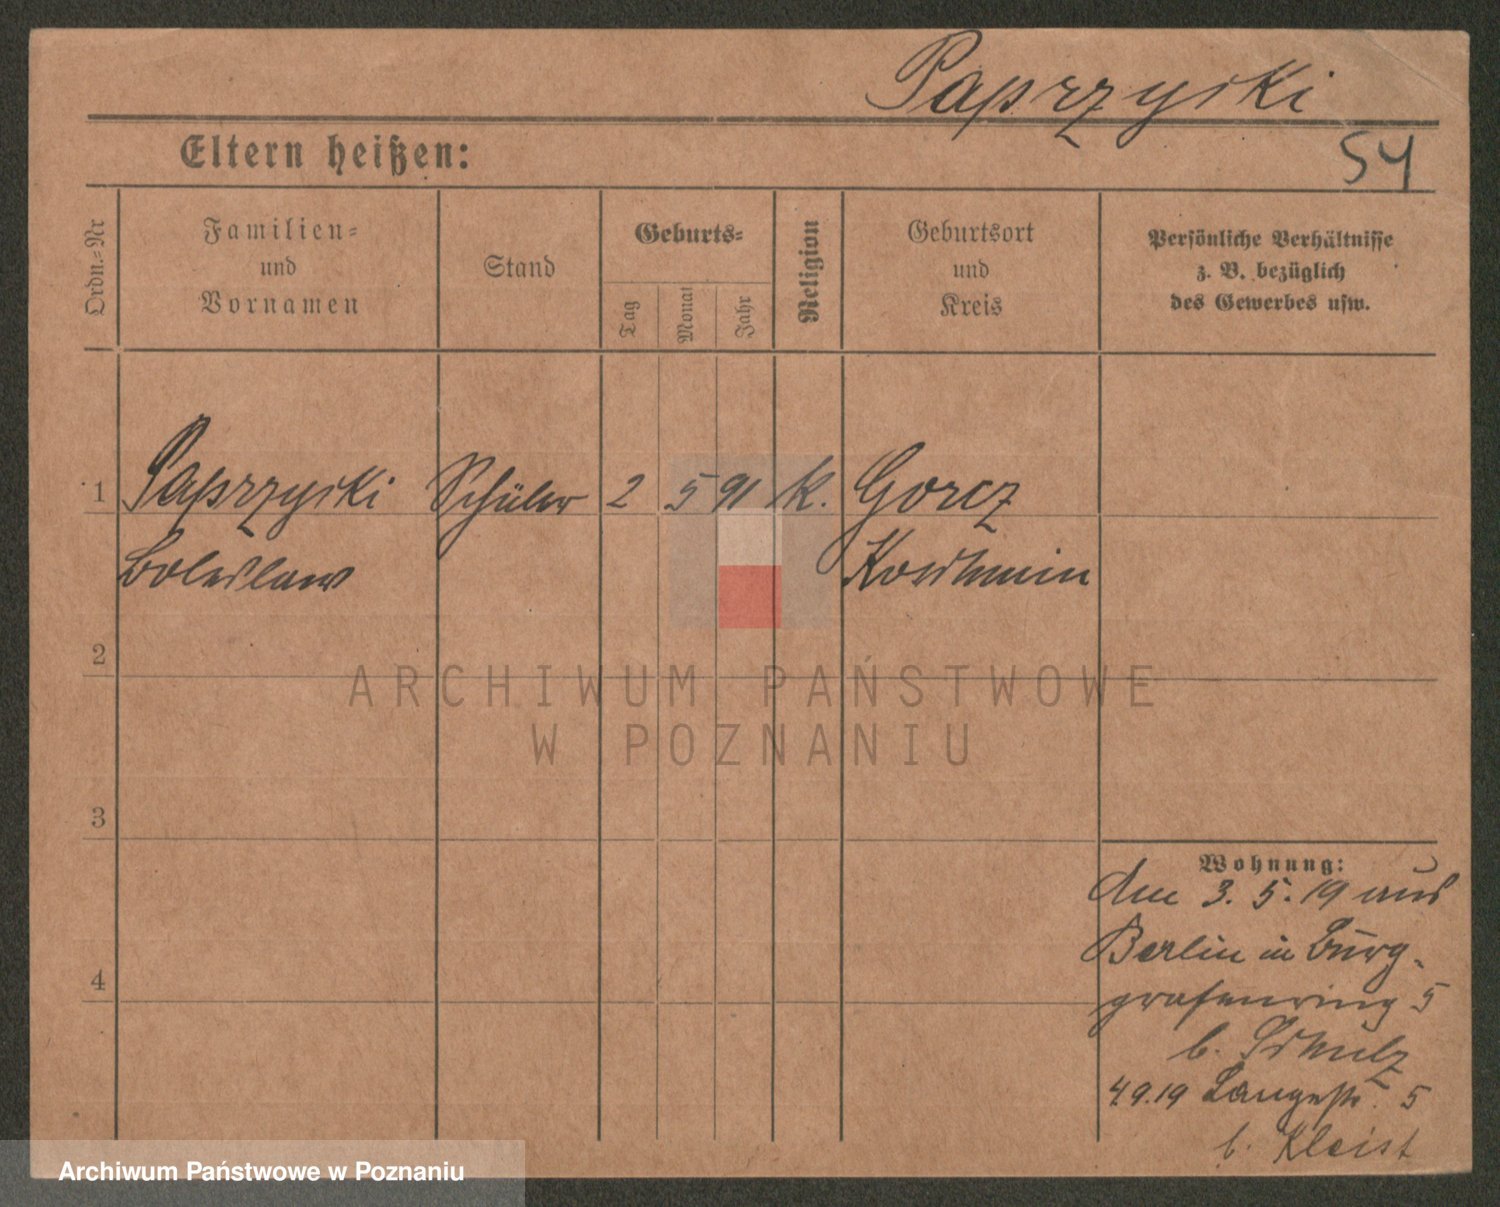 Paprzycki
54
Eltern heißen:
Ordn.-Nr
Familien- und Vornamen
Stand
Geburts-
Tag
Monat
Jahr
Religion
Geburtsort und Kreis
Persönliche Verhältnisse
z. B. bezüglich
des Gewerbes usw.
1 Paprzycki Schüler 2 5 91 k. Gorcz
Boleslaw Koschmin
2
ARCHIWUM PAŃSTWOWE
W POZNANIU
3
Wohnung:
Am 3. 5. 19 aus
Berlin in Burg-
4
grafenring 5
b. Schulz
4.9.19 Langestr. 5
b. Kleist
Archiwum Państwowe w Poznaniu